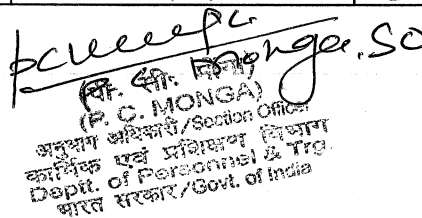 P. C. Monga. SO
(पी. सी. मोंगा)
(P. C. MONGA)
अनुभाग अधिकारी/Section Officer
कार्मिक एवं प्रशिक्षण विभाग
Deptt. of Personnel & Trg.
भारत सरकार/Govt. of India